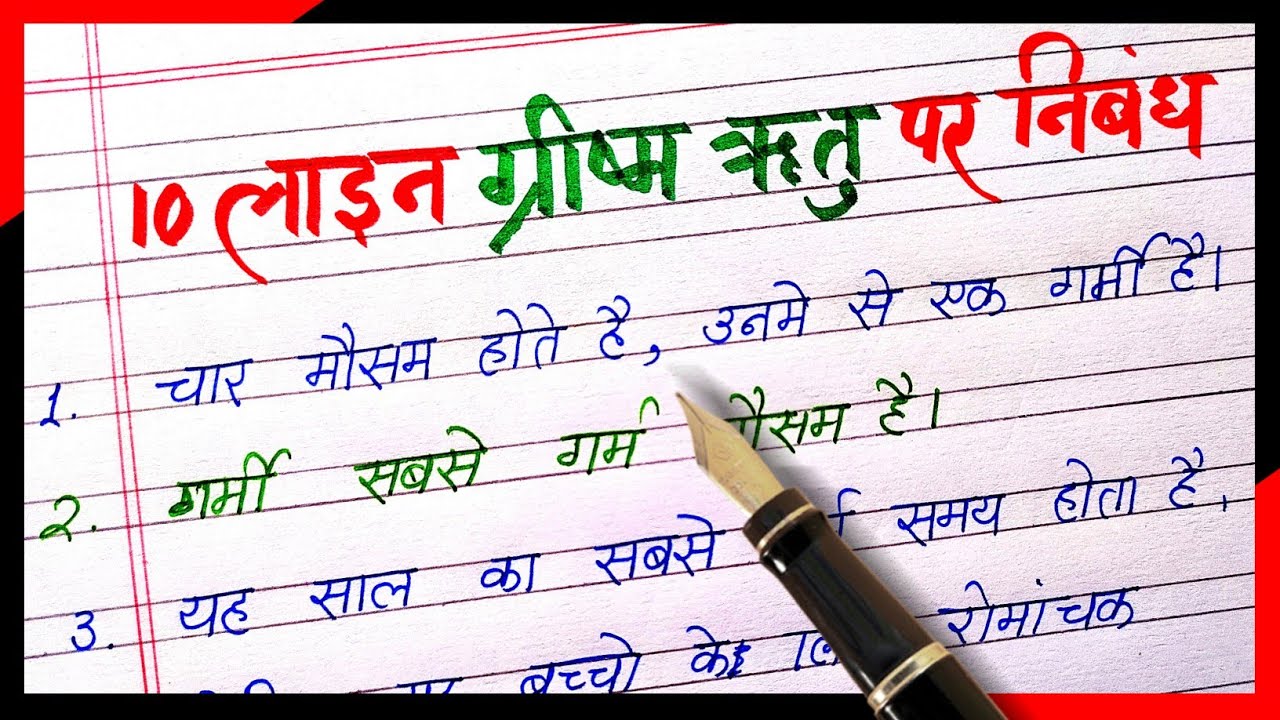 10 लाइन ग्रीष्म ऋतु पर निबंध
1. चार मौसम होते है, उनमे से एक गर्मी है।
2. गर्मी सबसे गर्म मौसम है।
3. यह साल का सबसे समय होता है,
बच्चो के रोमांचक